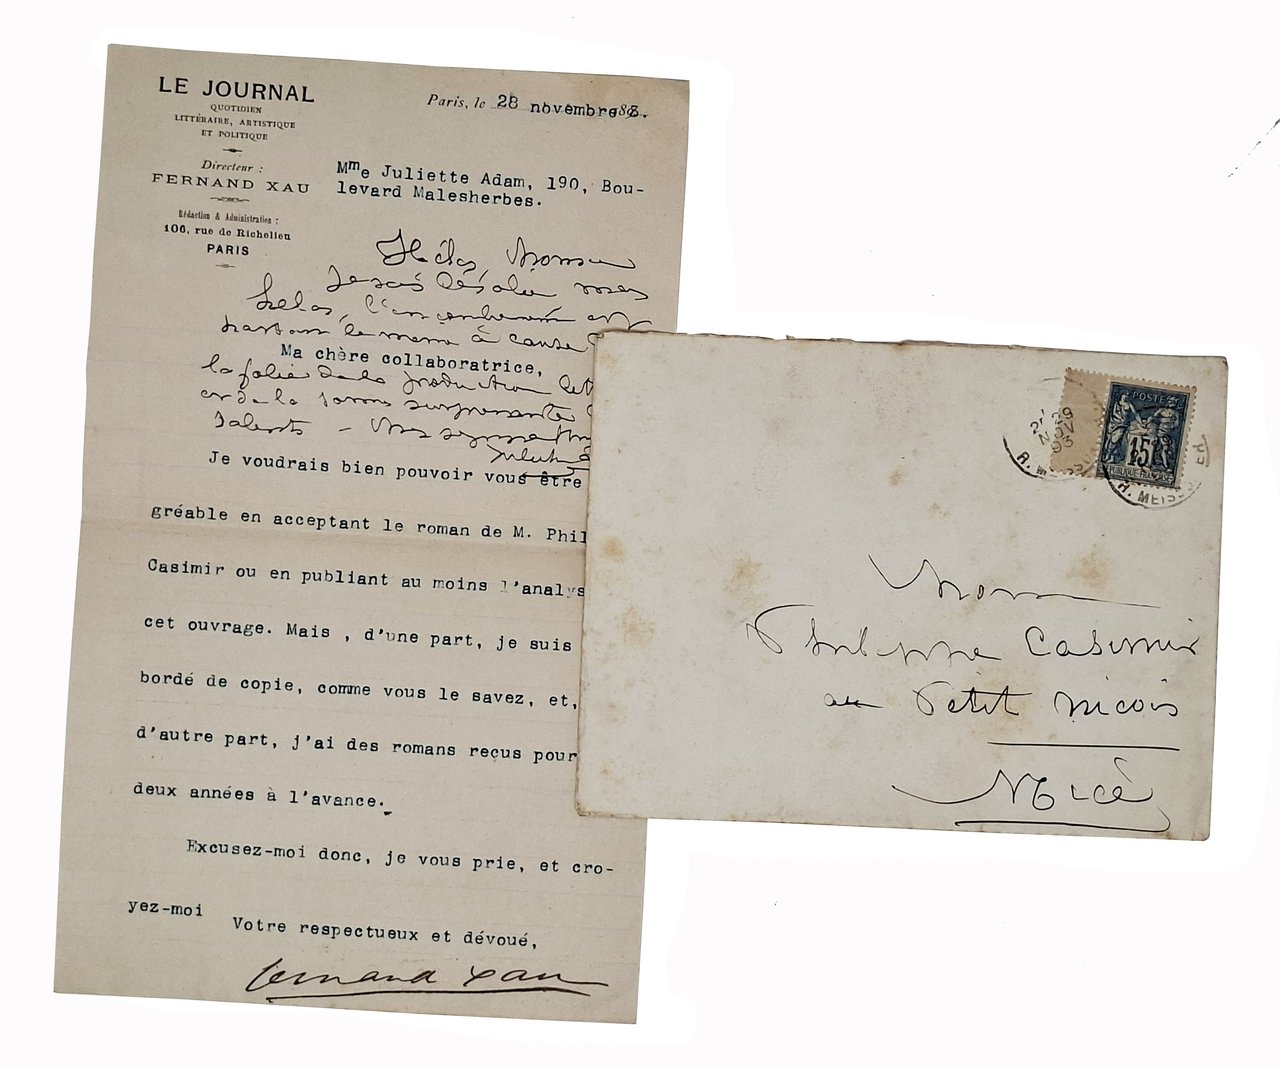 LE JOURNAL
QUOTIDIEN
LITTÉRAIRE, ARTISTIQUE
ET POLITIQUE
Directeur :
FERNAND XAU
Rédaction & Administration :
106, rue de Richelieu
PARIS
Paris, le 28 novembre 1893.
Mme Juliette Adam, 190, Bou-
levard Malesherbes.
Hélas, Monsieur
Je suis désolée mais
hélas, l'encombrement est
partout le même à cause
Ma chère collaboratrice,
la folie de la production
et de la somme surprenante
talents -
Je voudrais bien pouvoir vous être
gréable en acceptant le roman de M. Phil
Casimir ou en publiant au moins l'analys
cet ouvrage. Mais , d'une part, je suis
bordé de copie, comme vous le savez, et,
d'autre part, j'ai des romans reçus pour
deux années à l'avance.
Excusez-moi donc, je vous prie, et cro-
yez-moi
Votre respectueux et dévoué,
Fernand Xau
29
NOV
93
POSTE
15
REPUBLIQUE FRANÇAISE
R. MEISS
Monsieur
Philippe Casimir
au Petit Niçois
Nice